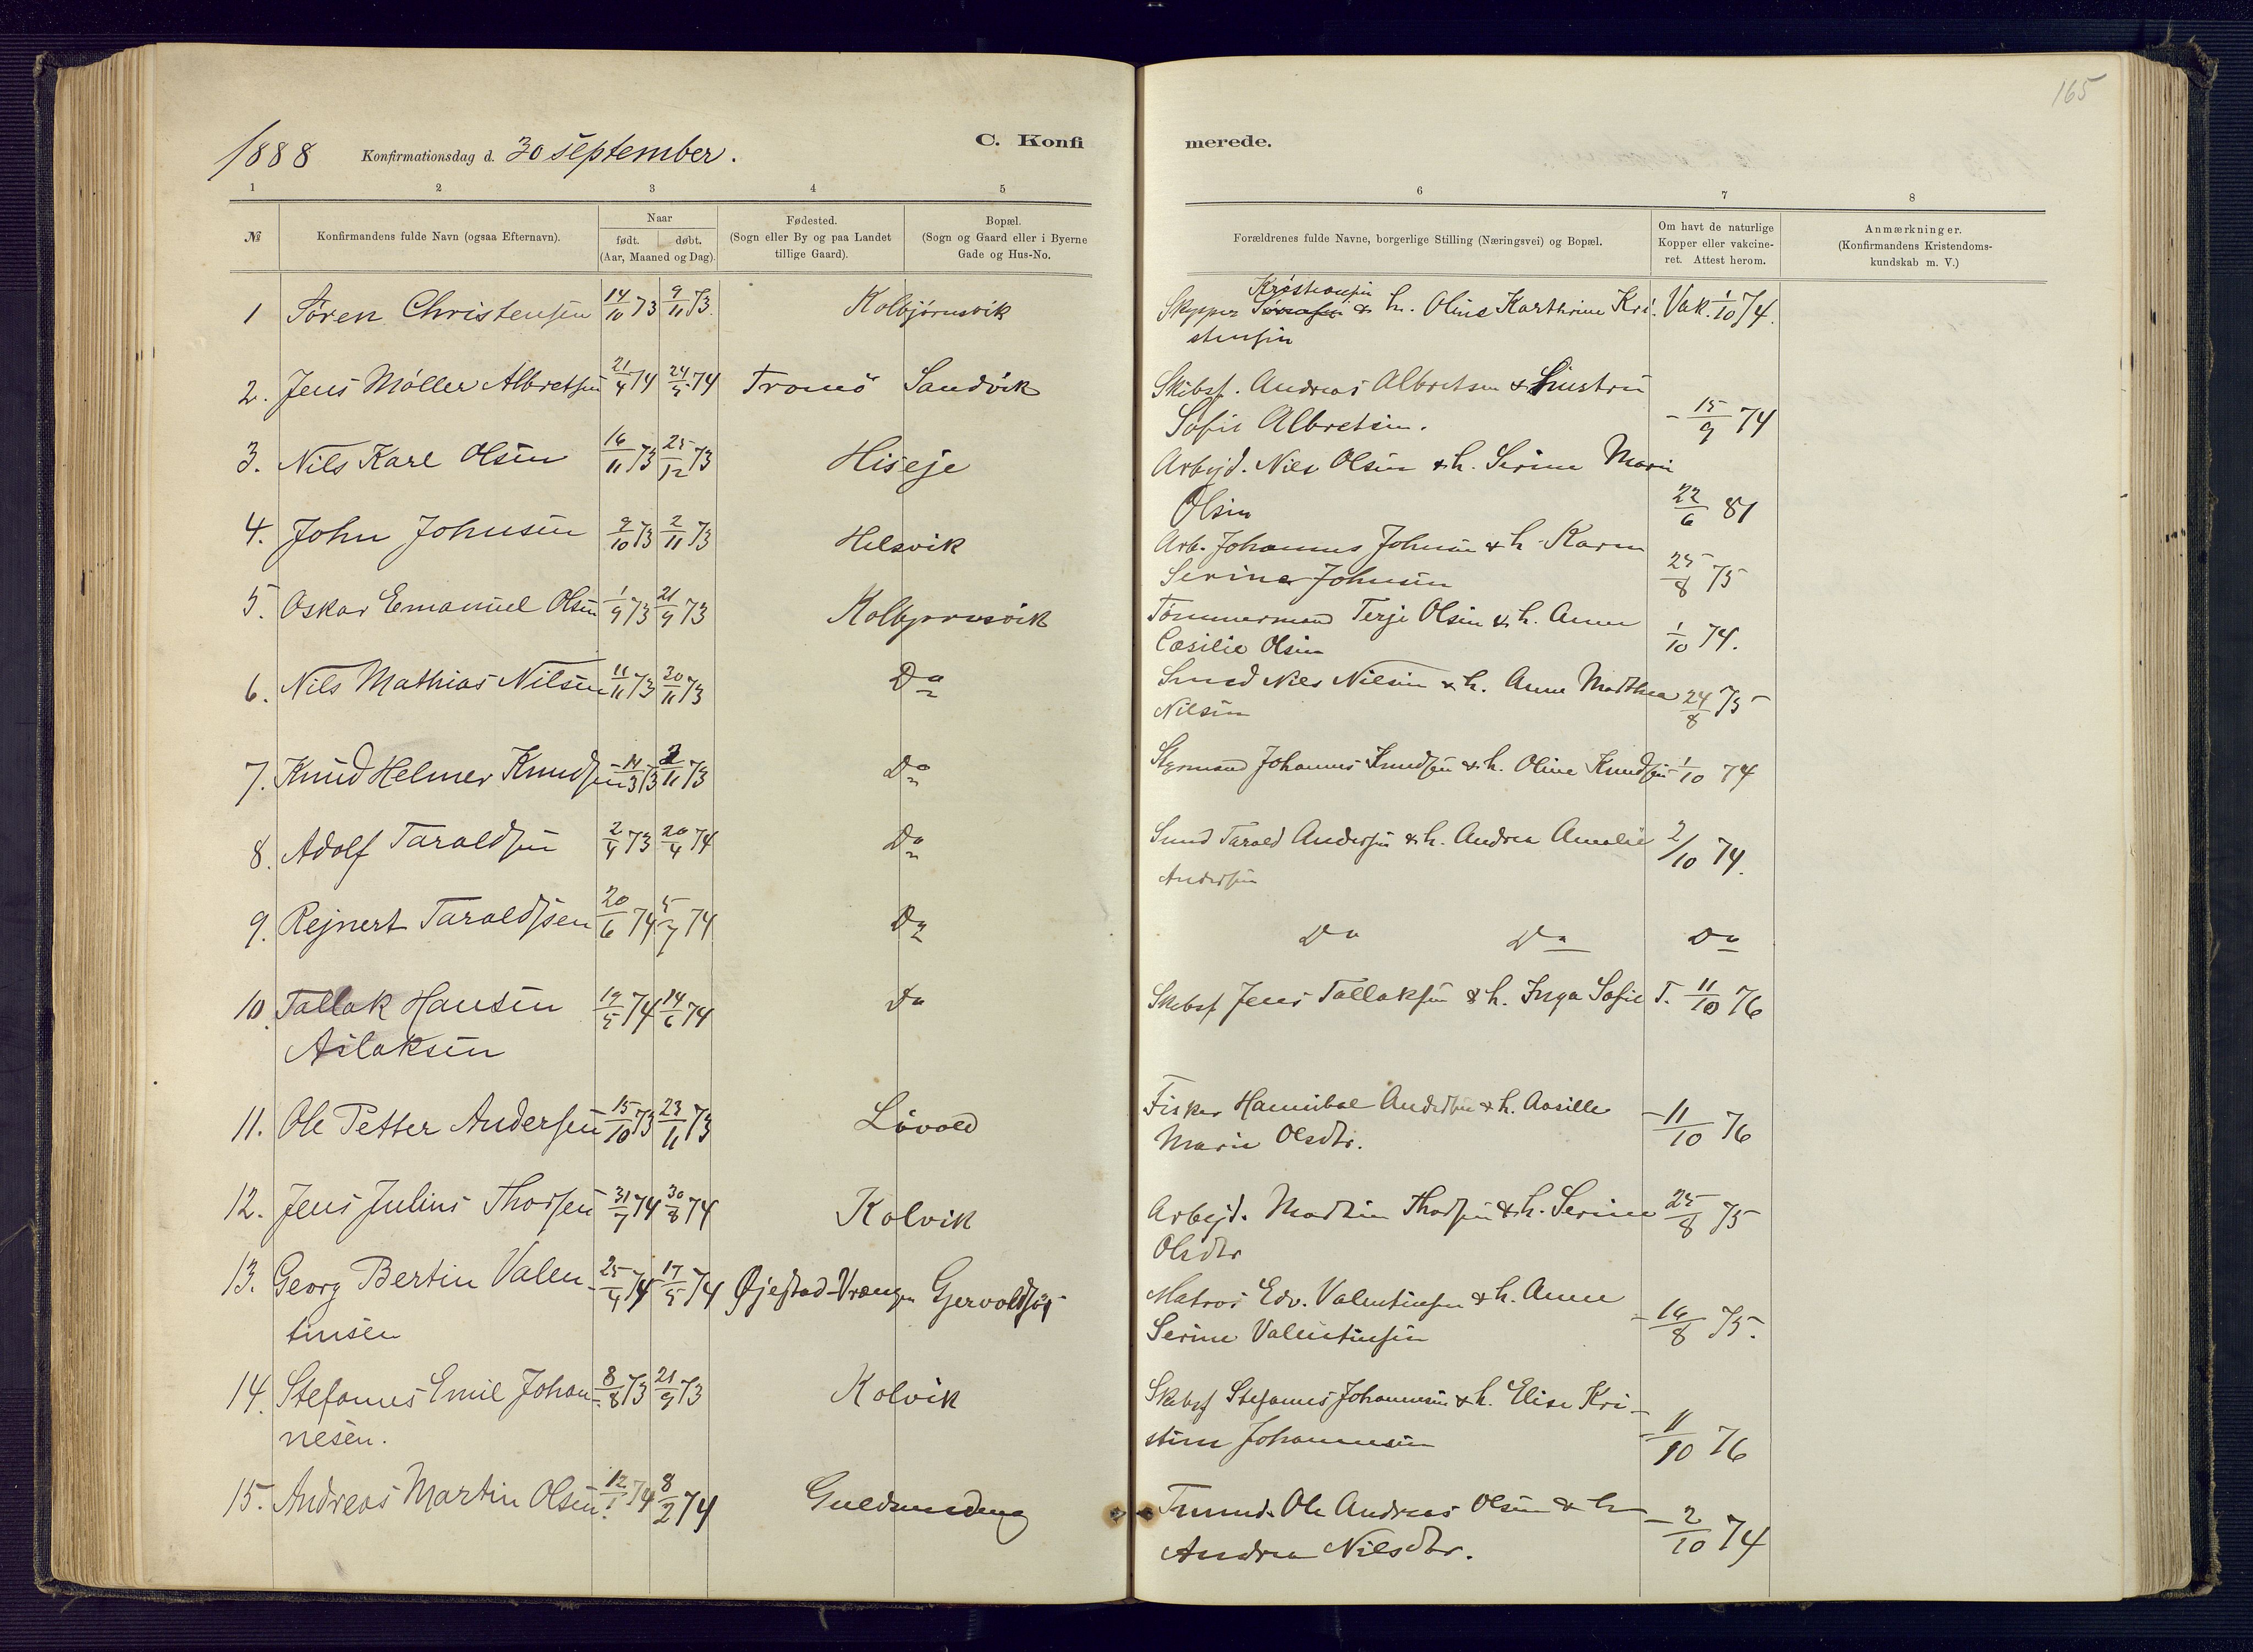 165
1888 Konfirmationsdag d. 30 september. C. Konfi merede.
1 2 3 4 5 6 7 8
№ Konfirmandens fulde Navn (ogsaa Efternavn). Naar født. døbt. (Aar, Maaned og Dag). Fødested. (Sogn eller By og paa Landet tillige Gaard). Bopæl. (Sogn og Gaard eller i Byerne Gade og Hus-No. Forældrenes fulde Navne, borgerlige Stilling (Næringsvei) og Bopæl. Om havt de naturlige Kopper eller vakcineret. Attest herom. Anmærkninger. (Konfirmandens Kristendomskundskab m. V.)
Kristiansen
1 Sören Christensen 14/10 73 9/11 73. Kolbjørnsvik Skypper & h. Oline Karthrine Kri- Vak. 1/10 74.
stensen
2. Jens Möller Albretsen 21/4 74 24/5 74 Tromö Sandvik Skibsf. Andreas Albretsen & Hustru
Sofie Albretsen. - 15/9 74
3. Nils Karl Olsen 16/11 73 25/12 73 Hiseje Arbejd. Niels Olsen & h. Serine Marie
Olsen 22/6 81
4. John Johnsen 9/10 73 2/11 73 Helsvik Arb. Johannes Johnsen & h. Karen
Serine Johnsen 25/8 75
5. Oskar Emanuel Olsen 1/9 73 21/9 73 Kolbjornsvik Tømmermand Terje Olsen & h. Anne
Cæsilie Olsen 1/10 74.
6. Nils Mathias Nilsen 11/11 73 20/11 73 Do Smed Niels Nilsen & h. Anne Matthea 24/8 75
Nilsen
7. Knud Helmer Knudsen 14/3 73 2/11 73 Do Styrmand Johannes Knudsen & h. Oline Knudsen 1/10 74
8. Adolf Taraldsen 2/4 73 20/4 74 Do Smed Tarald Andersen & h. Andrea Amalie 2/10 74.
Andersen
9. Rejnert Taraldsen 20/6 74 5/7 74 Do Do Do Do
10. Tallak Hansen 19/5 74 14/6 74 Do Skibsf Jens Tallaksen & h. Inga Sofie T. 11/10 76
Aslaksen
11. Ole Petter Andersen 15/10 73 23/11 73 Lövold Fisker Hannibal Andersen & h. Aasille
Marie Olsdtr. - 11/10 76
12. Jens Julius Thorsen 31/7 74 30/8 74 Kolvik Arbejd. Martin Thorsen & h. Serine 25/8 75
Olsdtr
13. Georg Bertin Valen- 25/4 74 17/5 74 Øjestad-Vrængen Gjervoldsöj Matros Edv. Valentinsen & h. Anne
tinsen Serine Valentinsen - 16/8 75.
14. Stefanus Emil Johan- 8/8 73 21/9 73 Kolvik Skibsf Stefanus Johannesen & h. Elise Kri-
nesen. stine Johannesen - 11/10 76
15. Andreas Martin Olsen. 12/1 74 8/2 74 Guldsmedeng Tmmd. Ole Andreas Olsen & h
Andrea Nilsdtr. - 2/10 74